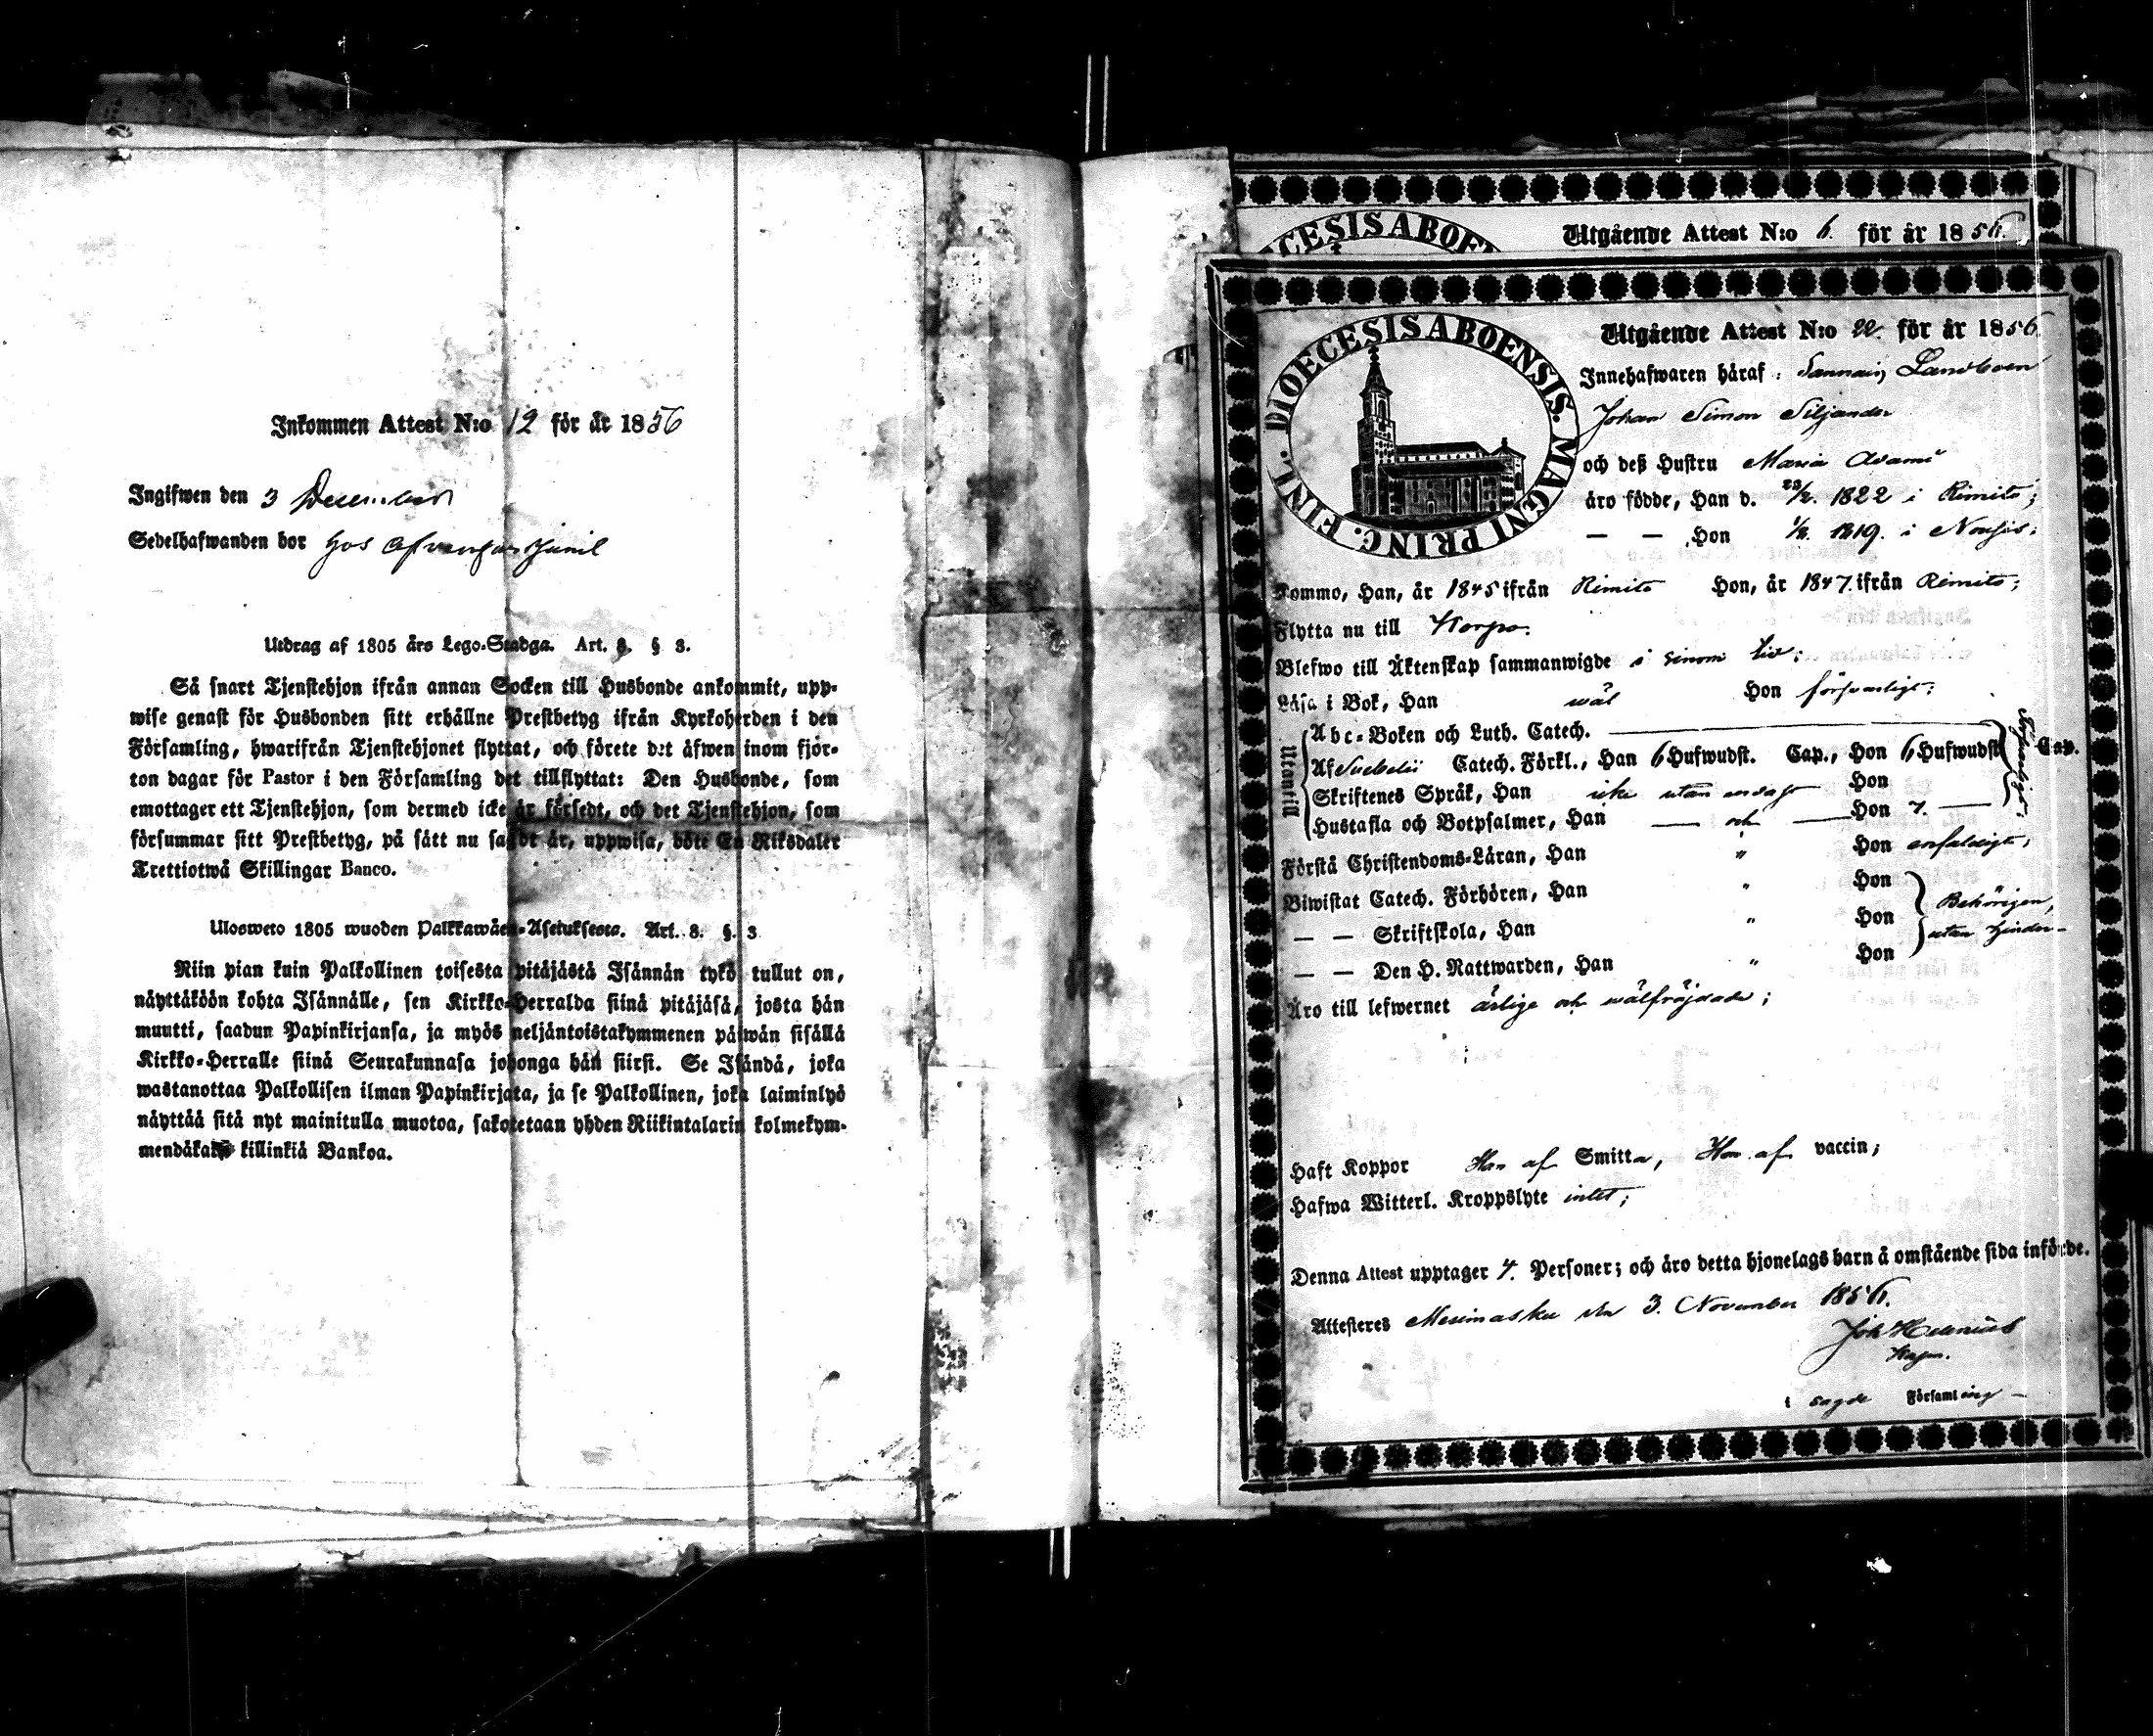 Inkommen Attest N:o 12 för år 1856
Ingifwen den 3 December
Sedelhafwanden bor hos
Utdrag af 1805 års Lego-Stadga. Art. 8. § 3.
Så snart Tjenstehjon ifrån annan Socken till Husbonde ankommit, upp-
wise genast för Husbonden sitt erhållne Prestbetyg ifrån Kyrkoherden i den
Församling, hwarifrån Tjenstehjonet flyttat, och förete det äfwen inom fjor-
ton dagar för Pastor i den Församling det tillflyttat: Den Husbonde, som
emottager ett Tjenstehjon, som dermed icke är försedt, och det Tjenstehjon, som
försummar sitt Prestbetyg, på sätt nu sagdt är, uppwisa, böte En Riksdaler
Trettiotwå Skillingar Banco.
Ulosweto 1805 wuoden Palkkawäen-Asetuksesta. Art. 8. §. 3
Niin pian kuin Palkollinen toisesta pitäjästä Isännän tykö tullut on,
näyttäköön kohta Isännälle, sen Kirkko-Herralda siinä pitäjäsä, josta hän
muutti, saadun Papinkirjansa, ja myös neljäntoistakymmenen päiwän sisällä
Kirkko-Herralle siinä Seurakunnasa johonga hän siirsi. Se Isändä, joka
wastanottaa Palkollisen ilman Papinkirjata, ja se Palkollinen, joka laiminlyö
näyttää sitä nyt mainitulla muotoa, sakotetaan yhden Riikintalarin kolmekym-
mendäkaksi killinkiä Bankoa.
Utgående Attest N:o 6. för år 1856.
DIOECESIS ABOENSIS. MAGNI PRINC. FINL.
Utgående Attest N:o 22. för år 1856
Innehafwaren häraf: Landboen
Johan Simon Siljander
och deß Hustru Maria Adams
äro födde, Han d. 23/2. 1822 i Rimito;
— — Hon 1819. i Nousis;
Kommo, Han, år 1845 ifrån Rimito Hon, år 1847. ifrån Rimito;
Flytta nu till Korpo.
Blefwo till Äktenskap sammanwigde i sinom tid;
Läsa i Bok, Han wäl Hon försvarligt;
Utantill
Abc-Boken och Luth. Catech.
Af Svebelii Catech. Förkl., Han 6 Hufwudst. Cap., Hon 6 Hufwudst. Cap.
Försvarligt.
Skriftenes Språk, Han icke utan Hon
Hustafla och Botpsalmer, Han — och — Hon 7. —
Förstå Christendoms-Läran, Han " Hon enfaldigt;
Biwistat Catech. Förhören, Han " Hon
Behörigen,
— — Skriftskola, Han " Hon
utan hinder
— — Den H. Nattwarden, Han " Hon
Äro till lefwernet ärlige och wälfräjdade;
Haft Koppor Han af Smitta, Hon af vaccin;
Hafwa Witterl. Kroppslyte intet;
Denna Attest upptager 4. Personer; och äro detta hjonelags barn å omstående sida införde.
Attesteres Merimasku den 3. November 1856.
Joh
i sagde Församling